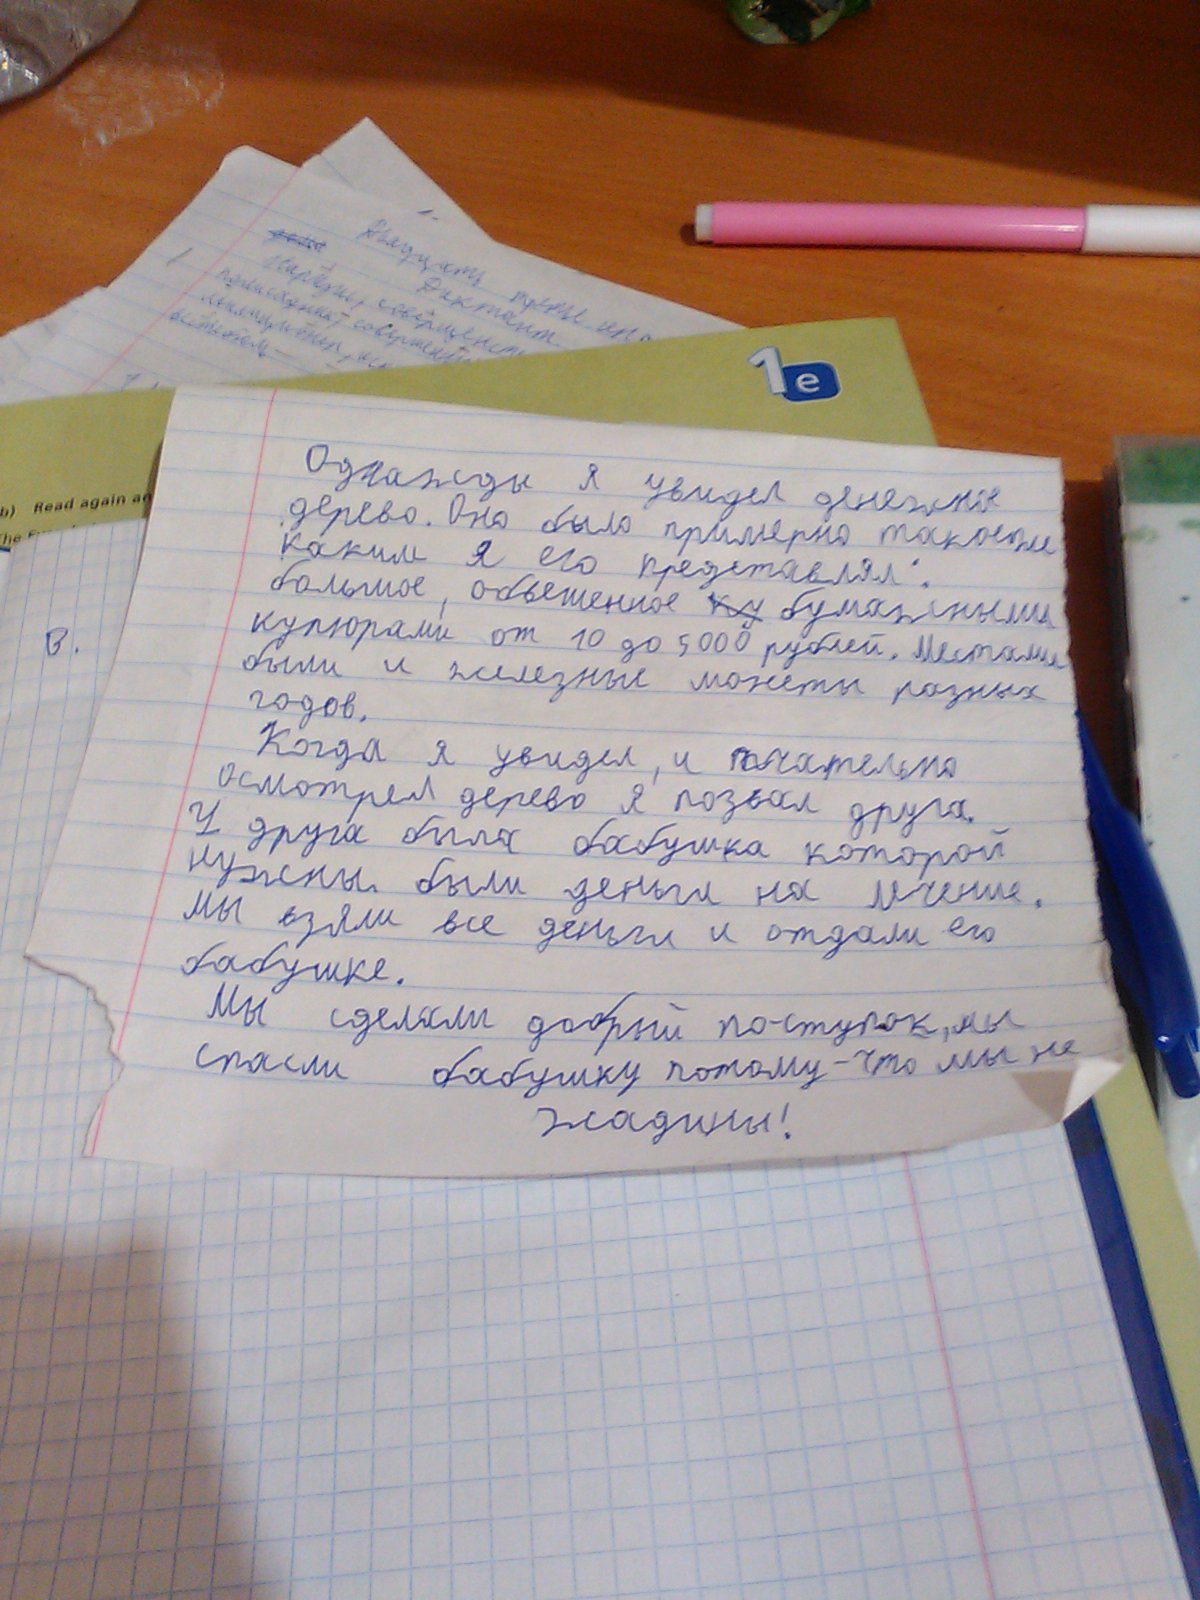 Двадцать третье
Диктант.
1e
b) Read again an
В.
Однажды я увидел денежное
дерево. Оно было примерно такое же
каким я его представлял:
большое, обвешенное ку бумажными
купюрами от 10 до 5000 рублей. Местами
были и железные монеты разных
годов.
Когда я увидел, и тчательно
осмотрел дерево я позвал друга.
У друга была бабушка которой
нужны были деньги на лечение.
Мы взяли все деньги и отдали его
бабушке.
Мы сделали добрый поступок, мы
спасли бабушку потому-что мы не
жадины!